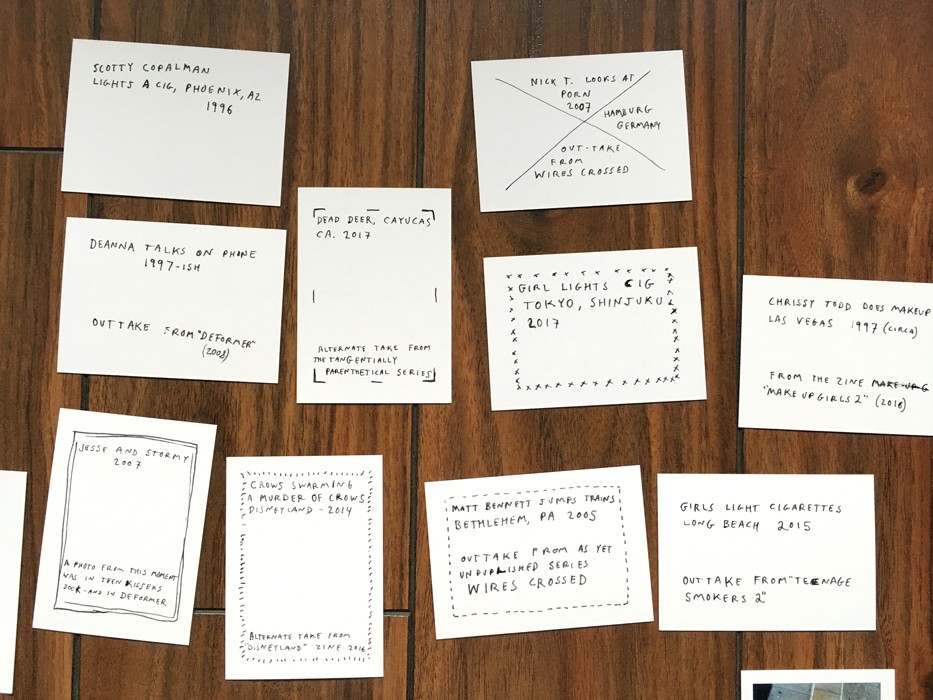 SCOTTY COPALMAN
LIGHTS A CIG, PHOENIX, AZ
1996
NICK T. LOOKS AT
PORN
2007
HAMBURG
GERMANY
OUT-TAKE
FROM
WIRES CROSSED
DEANNA TALKS ON PHONE
1997-ISH
OUTTAKE FROM "DEFORMER"
(2008)
DEAD DEER, CAYUCAS
CA. 2017
ALTERNATE TAKE FROM
THE TANGENTIALLY
PARENTHETICAL SERIES
GIRL LIGHTS CIG
TOKYO, SHINJUKU
2017
CHRISSY TODD DOES MAKEUP
LAS VEGAS 1997 (CIRCA)
FROM THE ZINE MAKE-UP G
"MAKE UP GIRLS 2" (2016)
JESSE AND STORMY
2007
A PHOTO FROM THIS MOMENT
WAS IN TEEN KISSERS
BOOK-AND IN DEFORMER
CROWS SWARMING
A MURDER OF CROWS
DISNEYLAND - 2014
ALTERNATE TAKE FROM
"DISNEYLAND" ZINE 2016
MATT BENNETT JUMPS TRAINS
BETHLEHEM, PA 2005
OUTTAKE FROM AS YET
UNPUBLISHED SERIES
WIRES CROSSED
GIRLS LIGHT CIGARETTES
LONG BEACH 2015
OUTTAKE FROM "TEENAGE
SMOKERS 2"